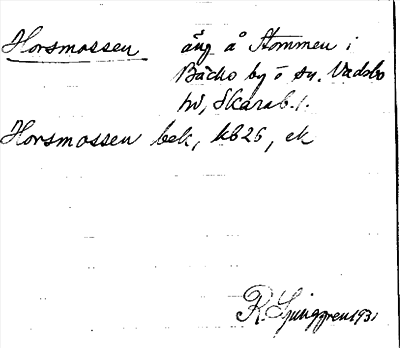 Horsmossen äng å Stommen i
Bäcko by ö sn. Vadsbo
hd, Skarab. l.
Horsmossen bek, kb25, ek
R Ljunggren 1931